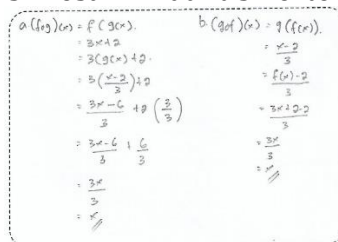 a (fog)(x) = f (g(x).
= 3x+2
= 3(g(x)+2.
= 3(x-2/3)+2
= 3x-6/3 +2 (3/3)
= 3x-6/3 + 6/3
= 3x/3
= x
b. (gof)(x) = g(f(x)).
= x-2/3
= f(x)-2/3
= 3x+2-2/3
= 3x/3
= x